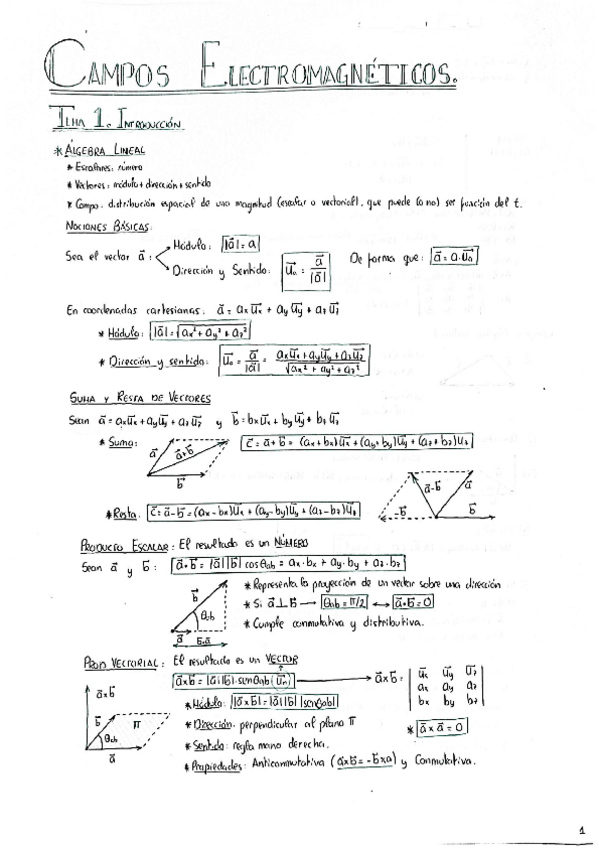 CAMPOS ELECTROMAGNÉTICOS.
TEMA 1. INTRODUCCIÓN
* ÁLGEBRA LINEAL
* Escalares: número
* Vectores: módulo + dirección + sentido
* Campo: distribución espacial de una magnitud (escalar o vectorial), que puede (o no) ser función del t.
NOCIONES BÁSICAS:
Sea el vector a⃗: Módulo: |a⃗| = a
Dirección y Sentido: u⃗ₐ = a⃗/|a⃗| De forma que: a⃗ = a·u⃗ₐ
En coordenadas cartesianas: a⃗ = ax u⃗x + ay u⃗y + az u⃗z
* Módulo: |a⃗| = √(ax² + ay² + az²)
* Dirección y sentido: u⃗ₐ = a⃗/|a⃗| = (ax u⃗x + ay u⃗y + az u⃗z)/√(ax² + ay² + az²)
SUMA Y RESTA DE VECTORES
Sean a⃗ = ax u⃗x + ay u⃗y + az u⃗z y b⃗ = bx u⃗x + by u⃗y + bz u⃗z
* Suma: a⃗ a⃗+b⃗ b⃗ c⃗ = a⃗ + b⃗ = (ax + bx)u⃗x + (ay + by)u⃗y + (az + bz)u⃗z
* Resta: c⃗ = a⃗ - b⃗ = (ax - bx)u⃗x + (ay - by)u⃗y + (az - bz)u⃗z -b⃗ a⃗-b⃗ a⃗ b⃗
PRODUCTO ESCALAR: El resultado es un NÚMERO
Sean a⃗ y b⃗: a⃗·b⃗ = |a⃗||b⃗| cosθab = ax·bx + ay·by + az·bz
b⃗ θab a⃗ b⃗·a⃗
* Representa la proyección de un vector sobre una dirección
* Si a⃗⊥b⃗ → θab = π/2 ↔ a⃗·b⃗ = 0
* Cumple conmutativa y distributiva.
PROD VECTORIAL: El resultado es un VECTOR
a⃗xb⃗ = |a⃗||b⃗|·senθab (u⃗n) → a⃗xb⃗ = | u⃗x u⃗y u⃗z |
| ax ay az |
| bx by bz |
a⃗xb⃗ b⃗ π θab a⃗
* Módulo: |a⃗xb⃗| = |a⃗||b⃗| |senθab|
* Dirección: perpendicular al plano π * a⃗ x a⃗ = 0
* Sentido: regla mano derecha.
* Propiedades: Anticonmutativa (a⃗xb⃗ = -b⃗xa⃗) y Conmutativa.
1